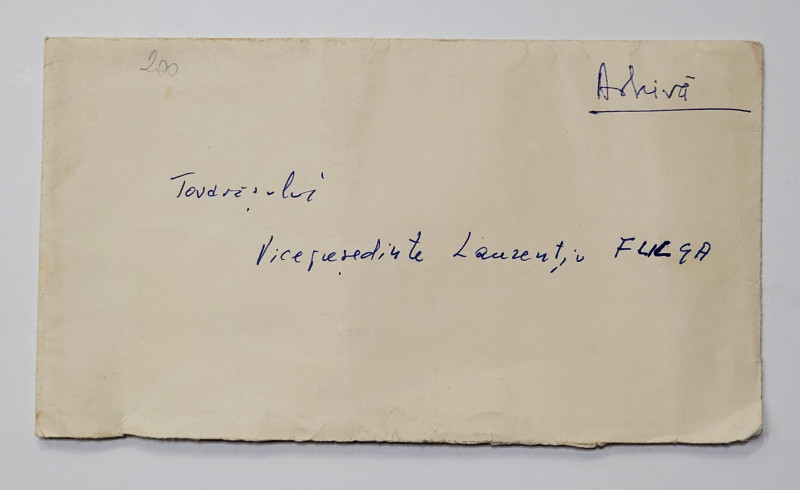 200
Arhivă
Tovarășului
Vicepreședinte Laurențiu FULGA